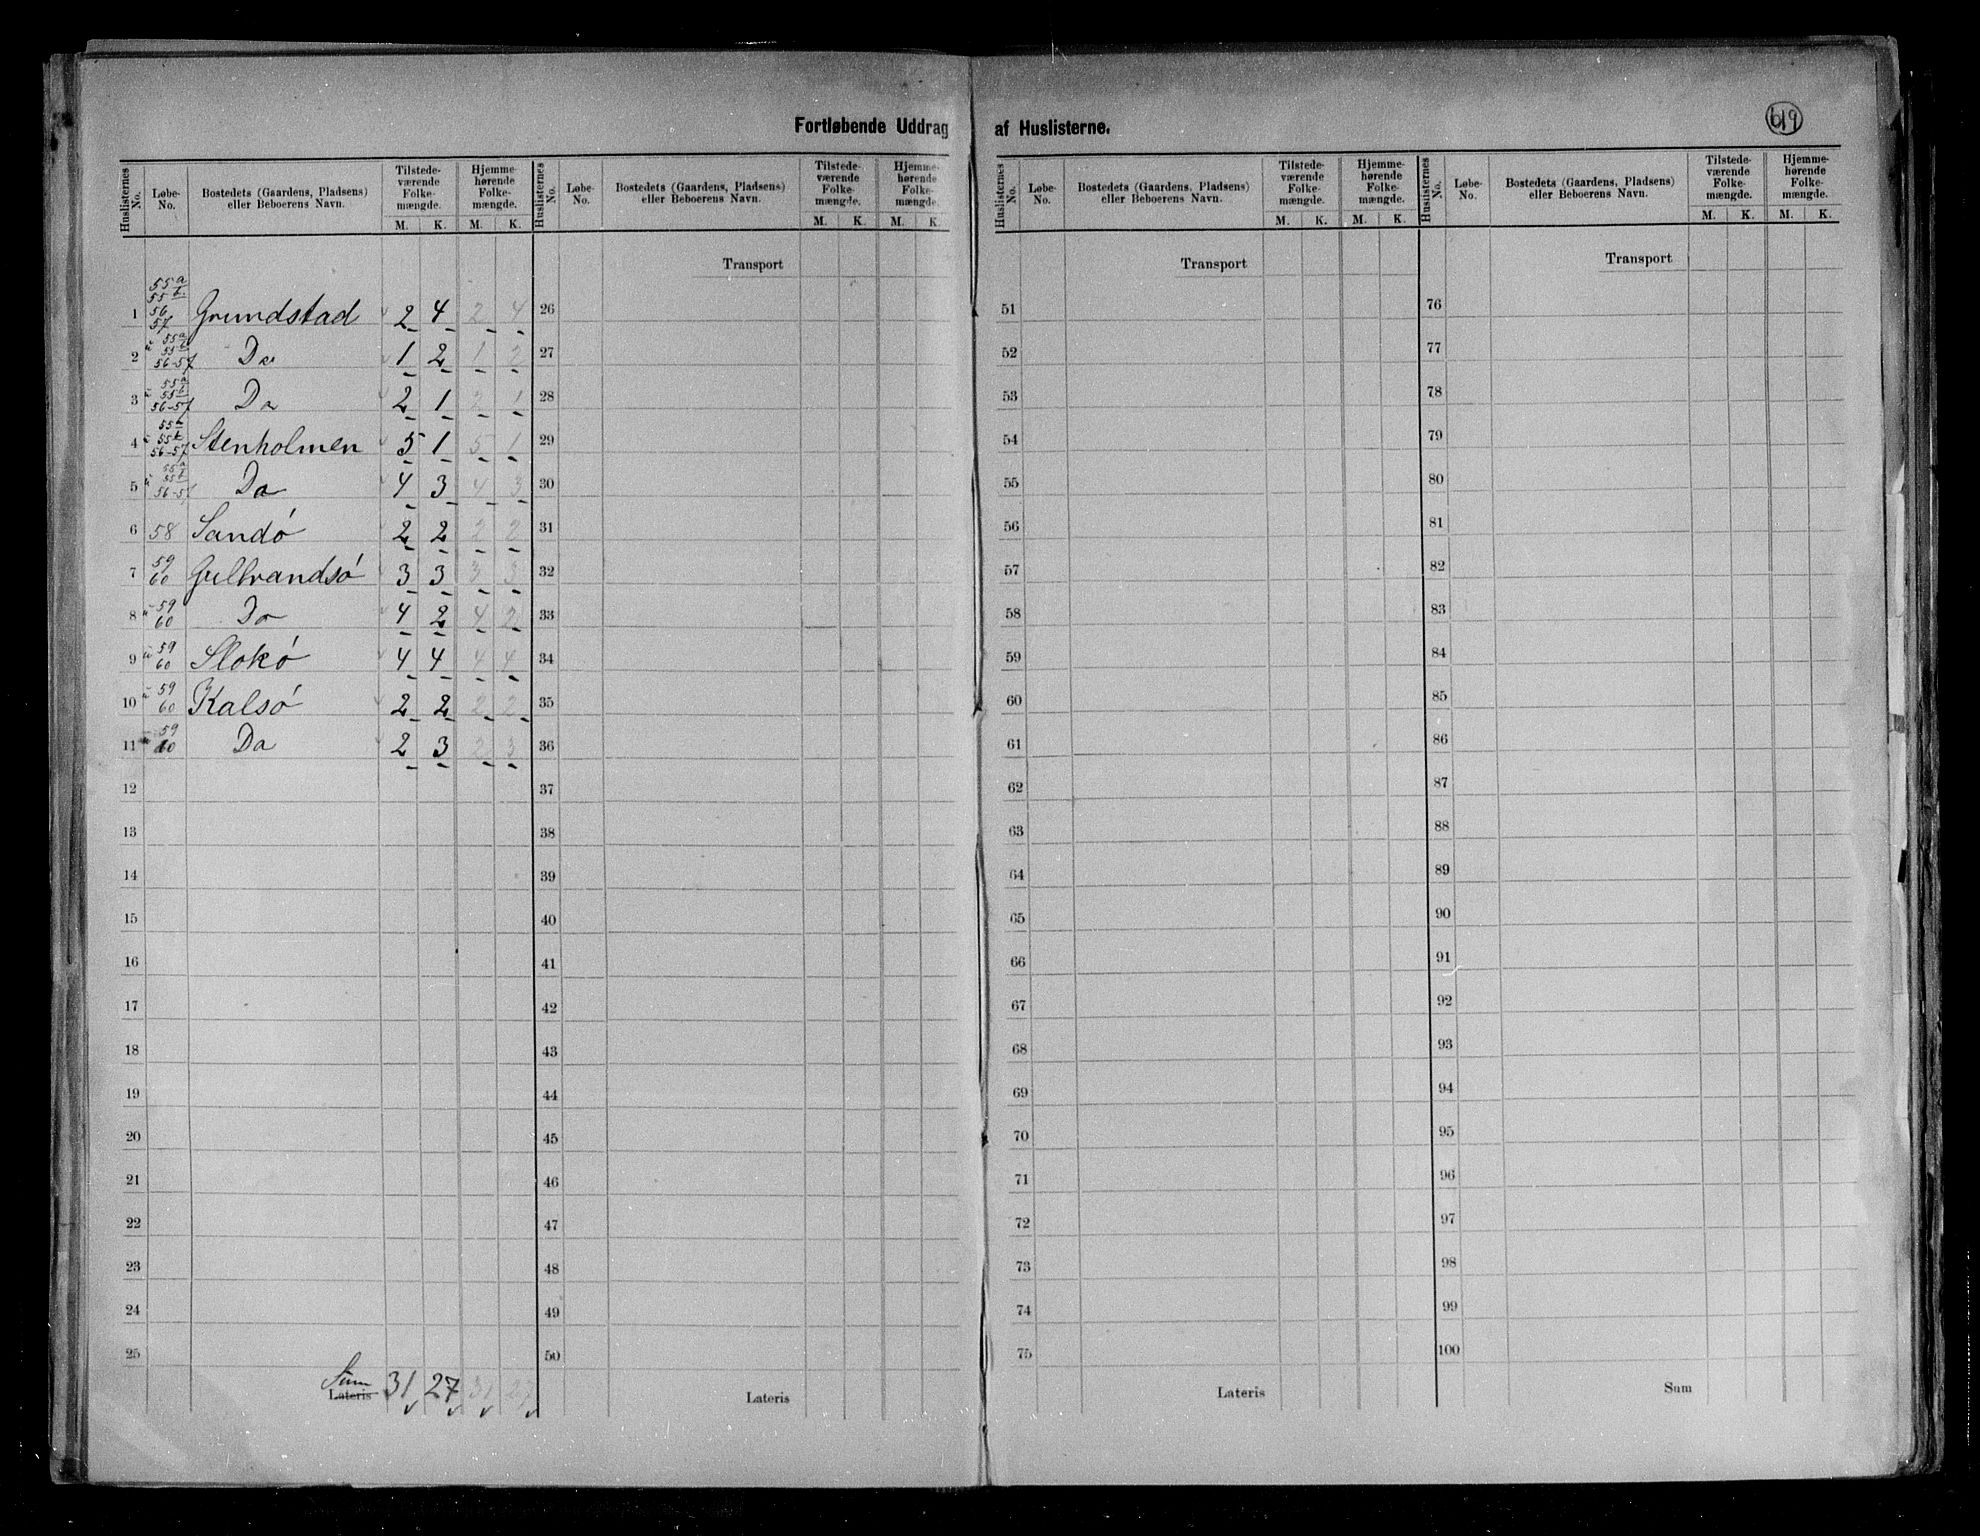 Fortløbende Uddrag af Huslisterne.
619
Huslisternes No. | Løbe-No. | Bostedets (Gaardens, Pladsens) eller Beboerens Navn. | Tilstedeværende Folkemængde. M. K. | Hjemmehørende Folkemængde. M. K.
1 | 55a 55b 56 57 | Grundstad | 2 | 4 | 2 | 4
2 | 55a 55b 56-57 | Do | 1 | 2 | 1 | 2
3 | 55a 55b 56-57 | Do | 2 | 1 | 2 | 1
4 | 55b 56-57 | Stenholmen | 5 | 1 | 5 | 1
5 | 55a 55b 56-57 | Do | 4 | 3 | 4 | 3
6 | 58 | Sandö | 2 | 2 | 2 | 2
7 | 59 60 | Gulbrandsö | 3 | 3 | 3 | 3
8 | 59 60 | Do | 4 | 2 | 4 | 2
9 | 59 60 | Slokö | 4 | 4 | 4 | 4
10 | 59 60 | Kalsö | 2 | 2 | 2 | 2
11 | 59 60 | Do | 2 | 3 | 2 | 3
12
13
14
15
16
17
18
19
20
21
22
23
24
25
Sum Lateris | 31 | 27 | 31 | 27
Huslisternes No. | Løbe-No. | Bostedets (Gaardens, Pladsens) eller Beboerens Navn. | Tilstedeværende Folkemængde. M. K. | Hjemmehørende Folkemængde. M. K.
Transport
26
27
28
29
30
31
32
33
34
35
36
37
38
39
40
41
42
43
44
45
46
47
48
49
50
Lateris
Huslisternes No. | Løbe-No. | Bostedets (Gaardens, Pladsens) eller Beboerens Navn. | Tilstedeværende Folkemængde. M. K. | Hjemmehørende Folkemængde. M. K.
Transport
51
52
53
54
55
56
57
58
59
60
61
62
63
64
65
66
67
68
69
70
71
72
73
74
75
Lateris
Huslisternes No. | Løbe-No. | Bostedets (Gaardens, Pladsens) eller Beboerens Navn. | Tilstedeværende Folkemængde. M. K. | Hjemmehørende Folkemængde. M. K.
Transport
76
77
78
79
80
81
82
83
84
85
86
87
88
89
90
91
92
93
94
95
96
97
98
99
100
Sum